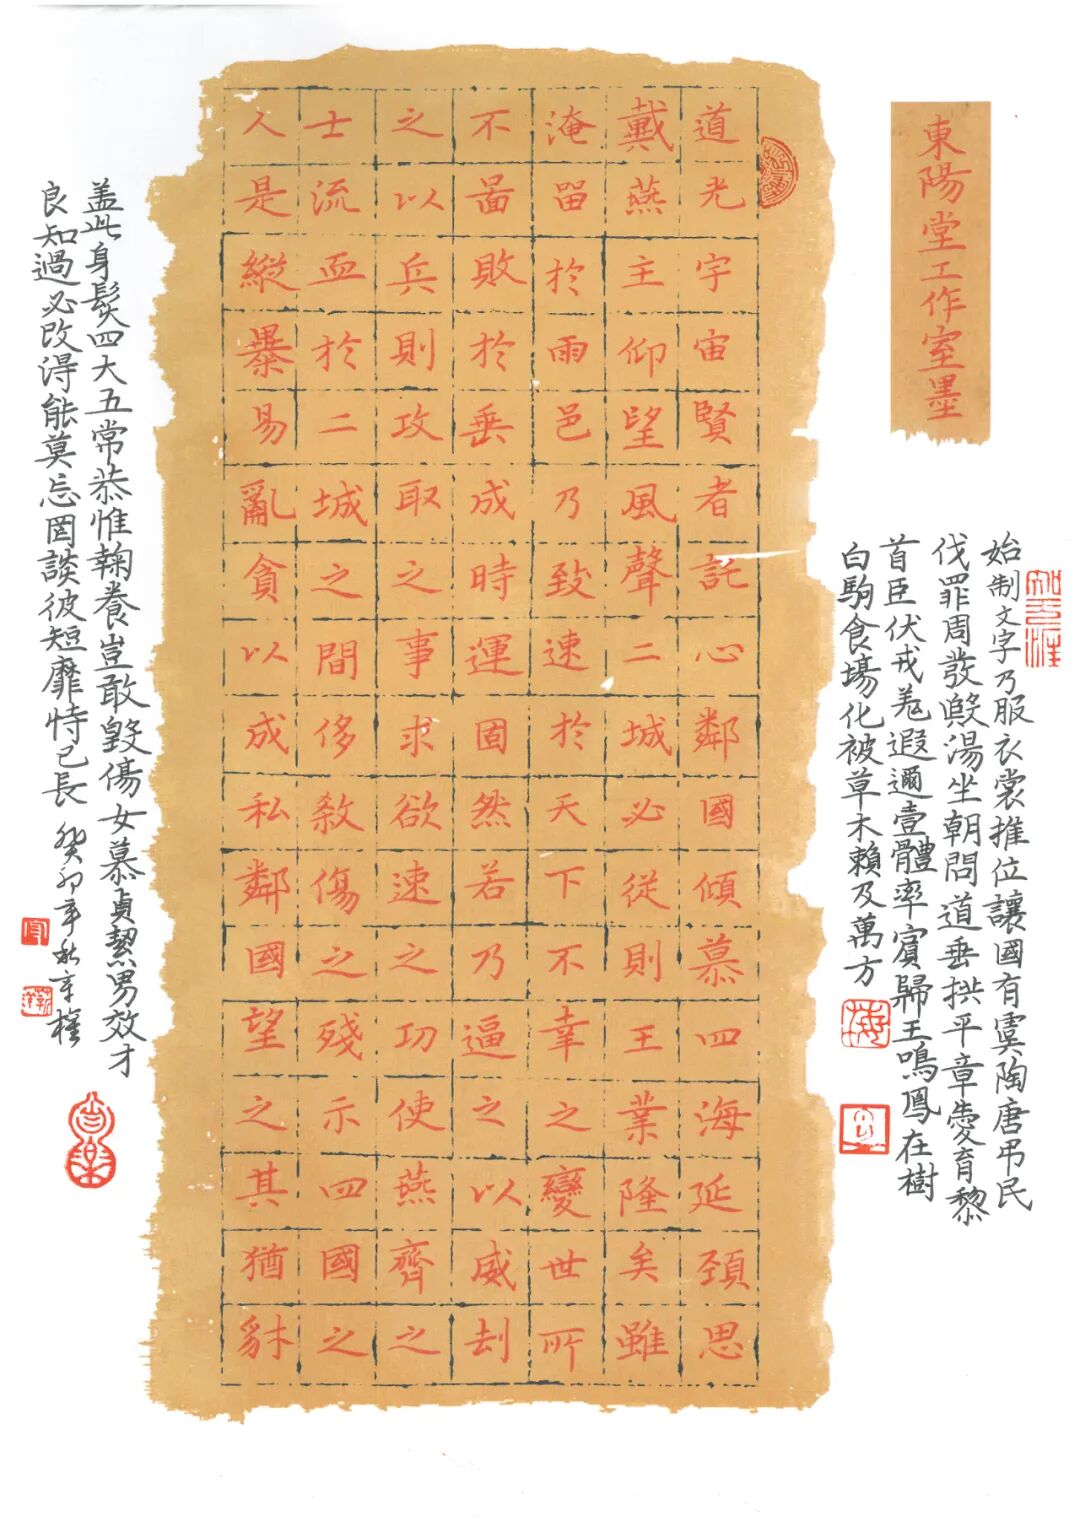 東陽堂工作室墨
始制文字乃服衣裳推位讓國有虞陶唐弔民
伐罪周發殷湯坐朝問道垂拱平章愛育黎
首臣伏戎羌遐邇壹體率賓歸王鳴鳳在樹
白駒食場化被草木賴及萬方
道光宇宙賢者託心鄰國傾慕四海延頸思
戴燕主仰望風聲二城必從則王業隆矣雖
淹留於雨邑乃致速於天下不幸之變世所
不啚敗於垂成時運固然若乃逼之以威刦
之以兵則攻取之事求欲速之功使燕齊之
士流血於二城之間侈殺傷之殘示四國之
人是縱暴易亂貪以成私鄰國望之其猶豺
盖此身髮四大五常恭惟鞠養豈敢毀傷女慕貞絜男效才
良知過必改得能莫忘罔談彼短靡恃己長 癸卯年秋